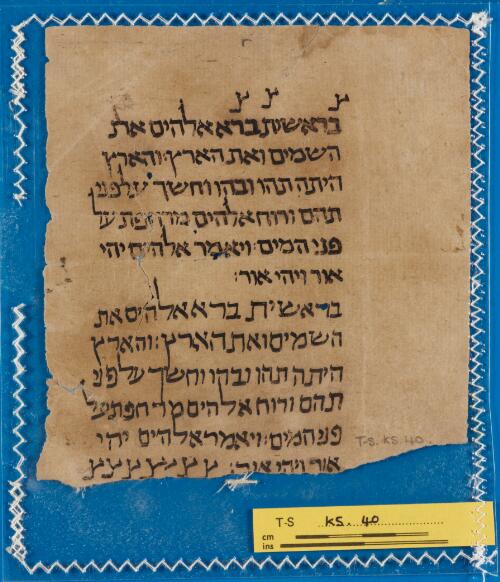 ץ ץ ץ
בראשית ברא אלהים את
השמים ואת הארץ׃ והארץ
היתה תהו ובהו וחשך על פני
תהם ורוח אלהים מרחפת על
פני המים׃ ויאמר אלהים יהי
אור ויהי אור׃
בראשית ברא אלהים את
השמים ואת הארץ׃ והארץ
היתה תהו ובהו וחשך על פני
תהם ורוח אלהים מרחפת על
פני המים׃ ויאמר אלהים יהי
אור ויהי אור׃ ץ ץ ץ ץ ץ ץ
T-S. KS. 40
T-S KS. 40
cm
ins